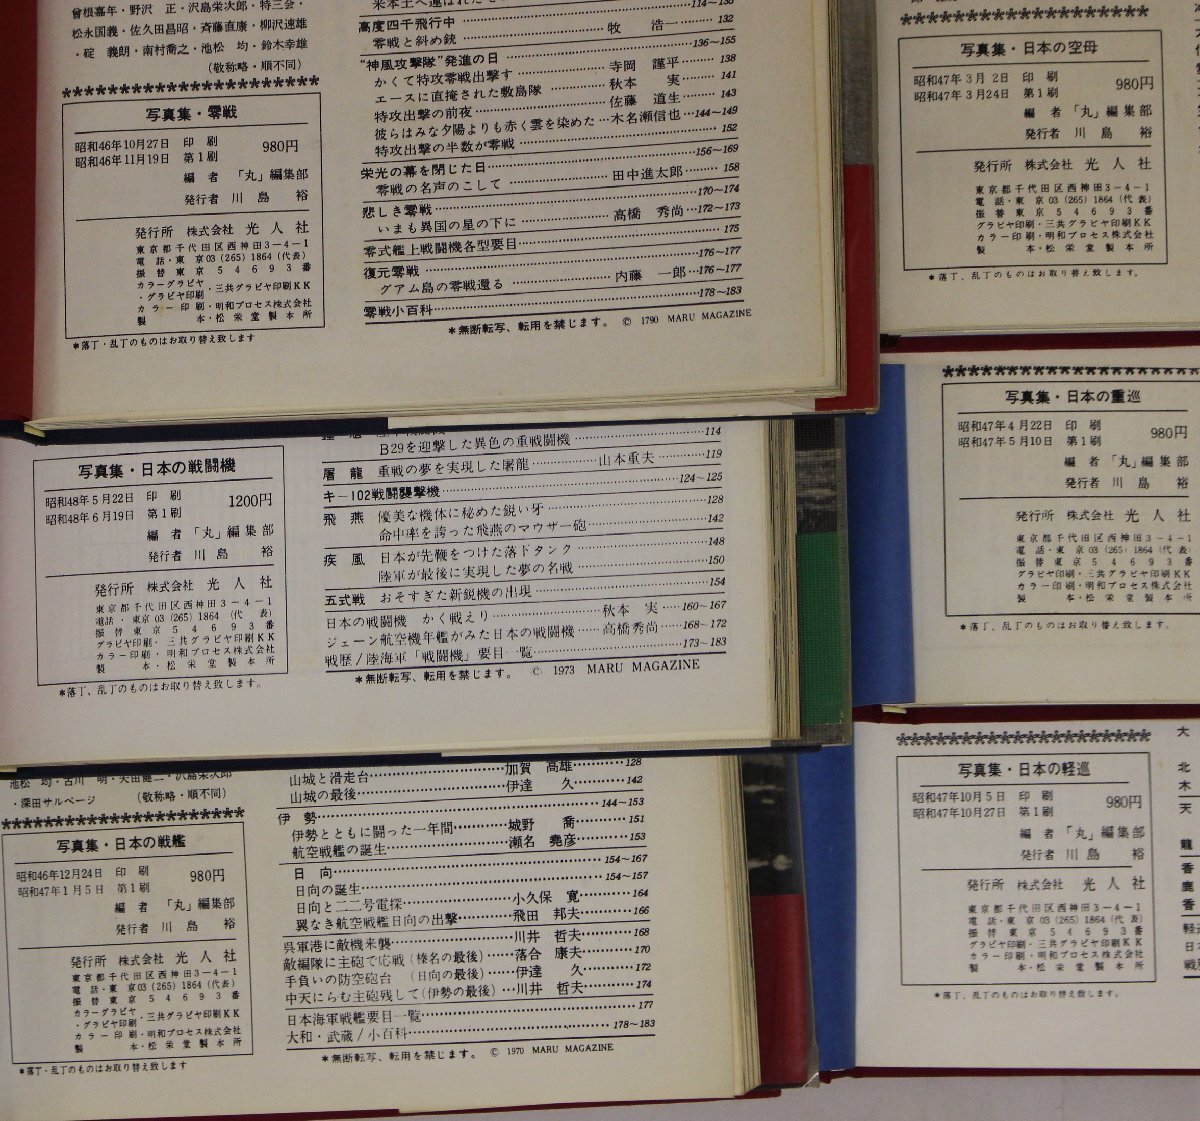 曽根嘉年・野沢 正・沢島栄次郎・特三会・
松永国義・佐久田昌昭・斉藤直康・柳沢速雄
・碇 義朗・南村喬之・池松 均・鈴木幸雄
(敬称略・順不同)
写真集・零戦
昭和46年10月27日 印 刷
昭和46年11月19日 第1刷
980円
編 者 「丸」編集部
発行者 川 島 裕
発行所 株式会社 光 人 社
東京都千代田区西神田3-4-1
電話・東 京03(265)1864(代表)
振 替 東 京 5 4 6 9 3 番
カラーグラビヤ
・グラビヤ印刷・三共グラビヤ印刷KK
カ ラ ー 印 刷・明和プロセス株式会社
製 本・松 栄 堂 製 本 所
*落丁・乱丁のものはお取り替え致します
114~135
高度四千飛行中……132
零戦と斜め銃……牧 浩一
“神風攻撃隊”発進の日……136~155
かくて特攻零戦出撃す……寺岡 謹平……138
エースに直掩された敷島隊……秋本 実……141
特攻出撃の前夜……佐藤 道生……143
彼らはみな夕陽よりも赤く雲を染めた…木名瀬信也…144~149
特攻出撃の半数が零戦……152
栄光の幕を閉じた日……156~169
零戦の名声のこして……田中進太郎……158
悲しき零戦……170~174
いまも異国の星の下に……高橋 秀尚…172~173
零式艦上戦闘機各型要目……175
復元零戦……176~177
グアム島の零戦還る……内藤 一郎…176~177
零戦小百科……178~183
*無断転写、転用を禁じます。 © 1790 MARU MAGAZINE
写真集・日本の空母
昭和47年3月2日 印 刷
昭和47年3月24日 第1刷
980円
編 者 「丸」編集部
発行者 川 島 裕
発行所 株式会社 光 人 社
東京都千代田区西神田3-4-1
電話・東 京03(265)1864(代表)
振 替 東 京 5 4 6 9 3 番
グラビヤ印刷・三共グラビヤ印刷KK
カラー印刷・明和プロセス株式会社
製 本・松 栄 堂 製 本 所
*落丁、乱丁のものはお取り替え致します。
写真集・日本の戦闘機
昭和48年5月22日 印 刷
昭和48年6月19日 第1刷
1200円
編 者 「丸」編集部
発行者 川 島 裕
発行所 株式会社 光 人 社
東京都千代田区西神田3-4-1
電話・東京03(265)1864(代 表)
振 替 東 京 5 4 6 9 3 番
グラビヤ印刷・三共グラビヤ印刷KK
カラー印刷・明和プロセス株式会社
製 本・松 栄 堂 製 本 所
*落丁、乱丁のものはお取り替え致します。
B29を迎撃した異色の重戦闘機……114
屠 龍 重戦の夢を実現した屠龍……山本重夫……119
キ-102戦闘襲撃機……124~125
飛 燕 優美な機体に秘めた鋭い牙……128
命中率を誇った飛燕のマウザー砲……142
疾 風 日本が先鞭をつけた落下タンク……148
陸軍が最後に実現した夢の名戦……150
五式戦 おそすぎた新鋭機の出現……154
日本の戦闘機 かく戦えり……秋本 実…160~167
ジェーン航空機年鑑がみた日本の戦闘機……高橋秀尚…168~172
戦歴/陸海軍「戦闘機」要目一覧……173~183
*無断転写、転用を禁じます。 © 1973 MARU MAGAZINE
写真集・日本の重巡
昭和47年4月22日 印 刷
昭和47年5月10日 第1刷
980円
編 者 「丸」編集部
発行者 川 島 裕
発行所 株式会社 光 人 社
東京都千代田区西神田3-4-1
電話・東 京03(265)1864(代表)
振 替 東 京 5 4 6 9 3 番
グラビヤ印刷・三共グラビヤ印刷KK
カラー印刷・明和プロセス株式会社
製 本・松 栄 堂 製 本 所
*落丁、乱丁のものはお取り替え致します。
池松 均・古川 明・矢田健二・沢島栄次郎
・深田サルベージ (敬称略・順不同)
写真集・日本の戦艦
昭和46年12月24日 印 刷
昭和47年1月5日 第1刷
980円
編 者 「丸」編集部
発行者 川 島 裕
発行所 株式会社 光 人 社
東京都千代田区西神田3-4-1
電話・東 京03(265)1864(代表)
振 替 東 京 5 4 6 9 3 番
カラーグラビヤ
・グラビヤ印刷・三共グラビヤ印刷KK
カ ラ ー 印 刷・明和プロセス株式会社
製 本・松 栄 堂 製 本 所
*落丁・乱丁のものはお取り替え致します
山城と滑走台……加賀 高雄……128
山城の最後……伊達 久……142
伊 勢……144~153
伊勢とともに闘った一年間……城野 喬……151
航空戦艦の誕生……瀬名 堯彦……153
日 向……154~167
日向の誕生……154~157
日向と二二号電探……小久保 寛……164
翼なき航空戦艦日向の出撃……飛田 邦夫……166
呉軍港に敵機来襲……川井 哲夫……168
敵編隊に主砲で応戦(榛名の最後)……落合 康夫……170
手負いの防空砲台 (日向の最後)……伊達 久……172
中天にらむ主砲残して(伊勢の最後)…川井 哲夫……174
日本海軍戦艦要目一覧……177
大和・武蔵/小百科……178~183
*無断転写、転用を禁じます。 © 1970 MARU MAGAZINE
写真集・日本の軽巡
昭和47年10月5日 印 刷
昭和47年10月27日 第1刷
980円
編 者 「丸」編集部
発行者 川 島 裕
発行所 株式会社 光 人 社
東京都千代田区西神田3-4-1
電話・東 京 03(265)1864(代 表)
振 替 東 京 5 4 6 9 3 番
グラビヤ印刷・三共グラビヤ印刷KK
カラー印刷・明和プロセス株式会社
製 本・松 栄 堂 製 本 所
*落丁、乱丁のものはお取り替え致します。
大
北
木
天
龍
香
鹿
香
軽巡
日本
戦歴